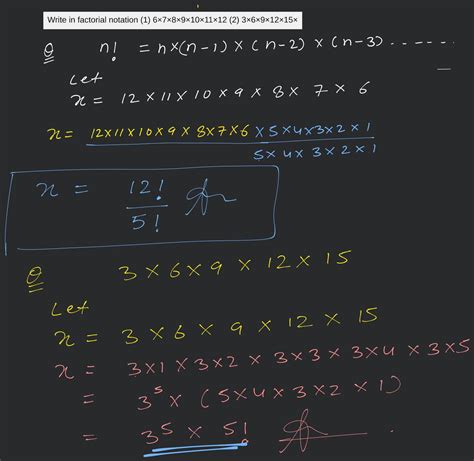 Write in factorial notation (1) 6×7×8×9×10×11×12 (2) 3×6×9×12×15×
Q n! = n×(n-1) × (n-2) × (n-3) . - - - - -
Let
x = 12 × 11 × 10 × 9 × 8 × 7 × 6
x = 12×11×10×9×8×7×6 × 5×4×3×2×1
5×4×3×2×1
x = 12!
5!
Q 3 × 6 × 9 × 12 × 15
Let
x = 3 × 6 × 9 × 12 × 15
x = 3×1 × 3×2 × 3×3 × 3×4 × 3×5
= 3⁵ × (5×4×3×2×1)
= 3⁵ × 5!